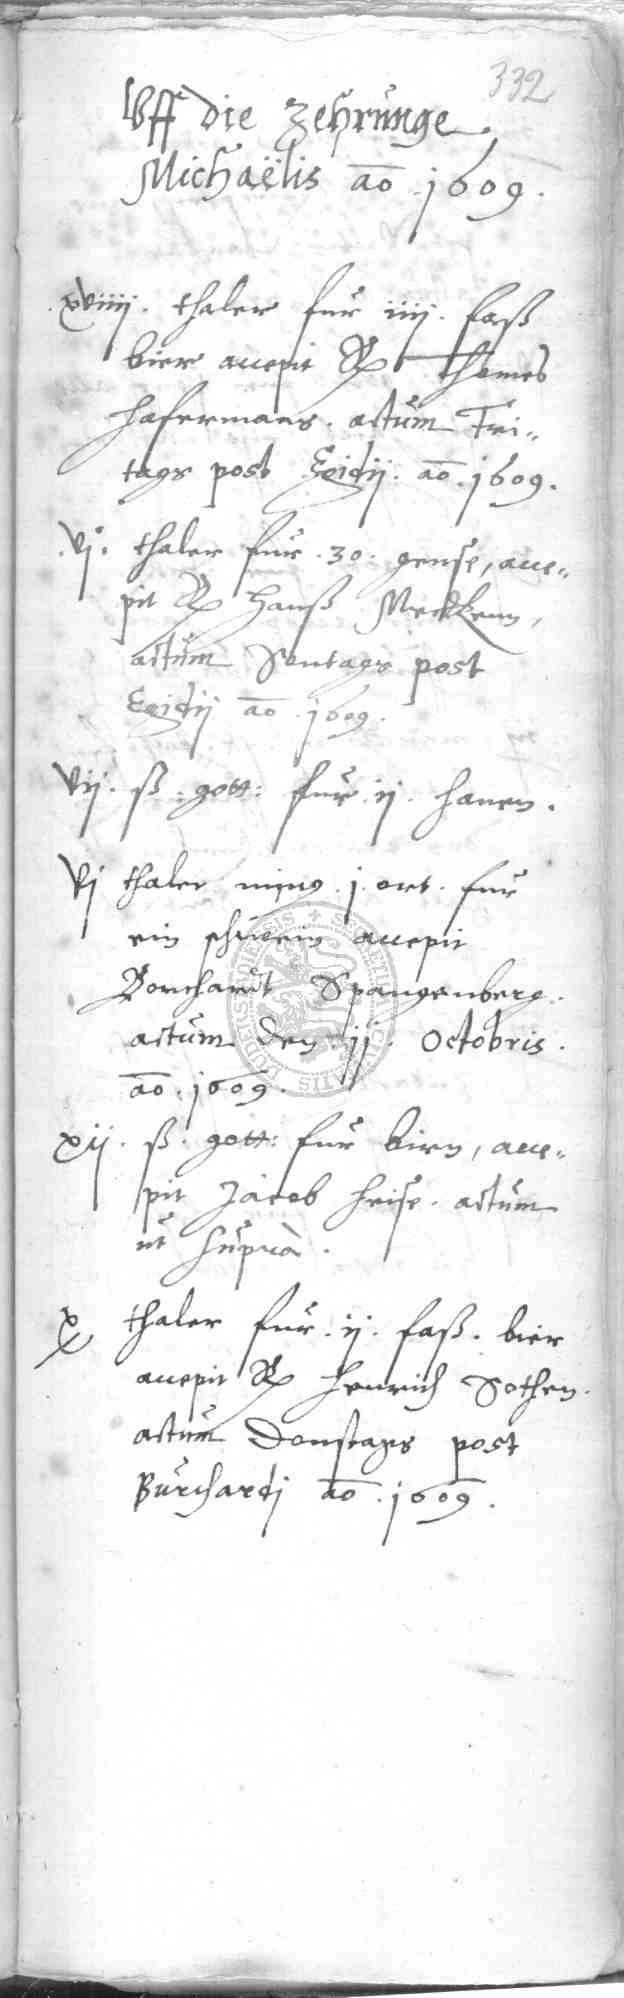 332
Uff die Zehrunge
Michaëlis ao. 1609.
xviiij. thaler fur iiij. faß
bier accepit Thomas
Hafermans. actum Fri„
tags post Egidij. ao. 1609.
vj. thaler fur .30. gense, acce„
pit Hanß Meckenn,
actum Sontags post
Egidij ao 1609.
vij. ß. gott: fur .ij. hanen.
vj thaler minus .j. ort. fur
ein schwein accepit
Borchardt Spangenberg.
actum den .ij. Octobris.
ao. 1609.
xij. ß. gott: fur birn, acce„
pit Jacob Heise. actum
ut supra.
x thaler fur .ij. faß. bier
accepit Henrich Sothen.
actum Donstags post
Burchardj ao. 1609.